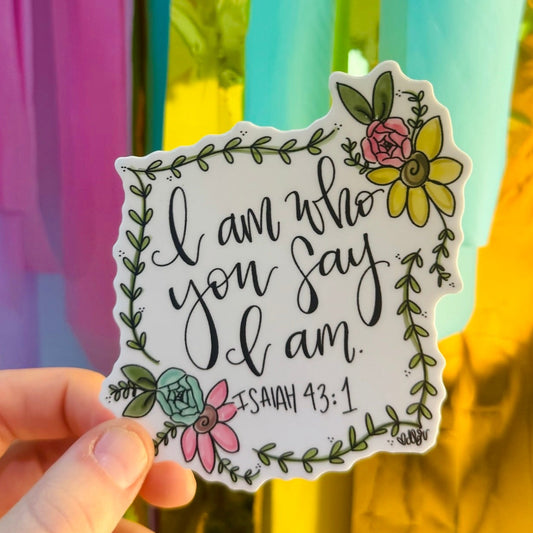 I am who
you say
I am.
ISAIAH 43:1